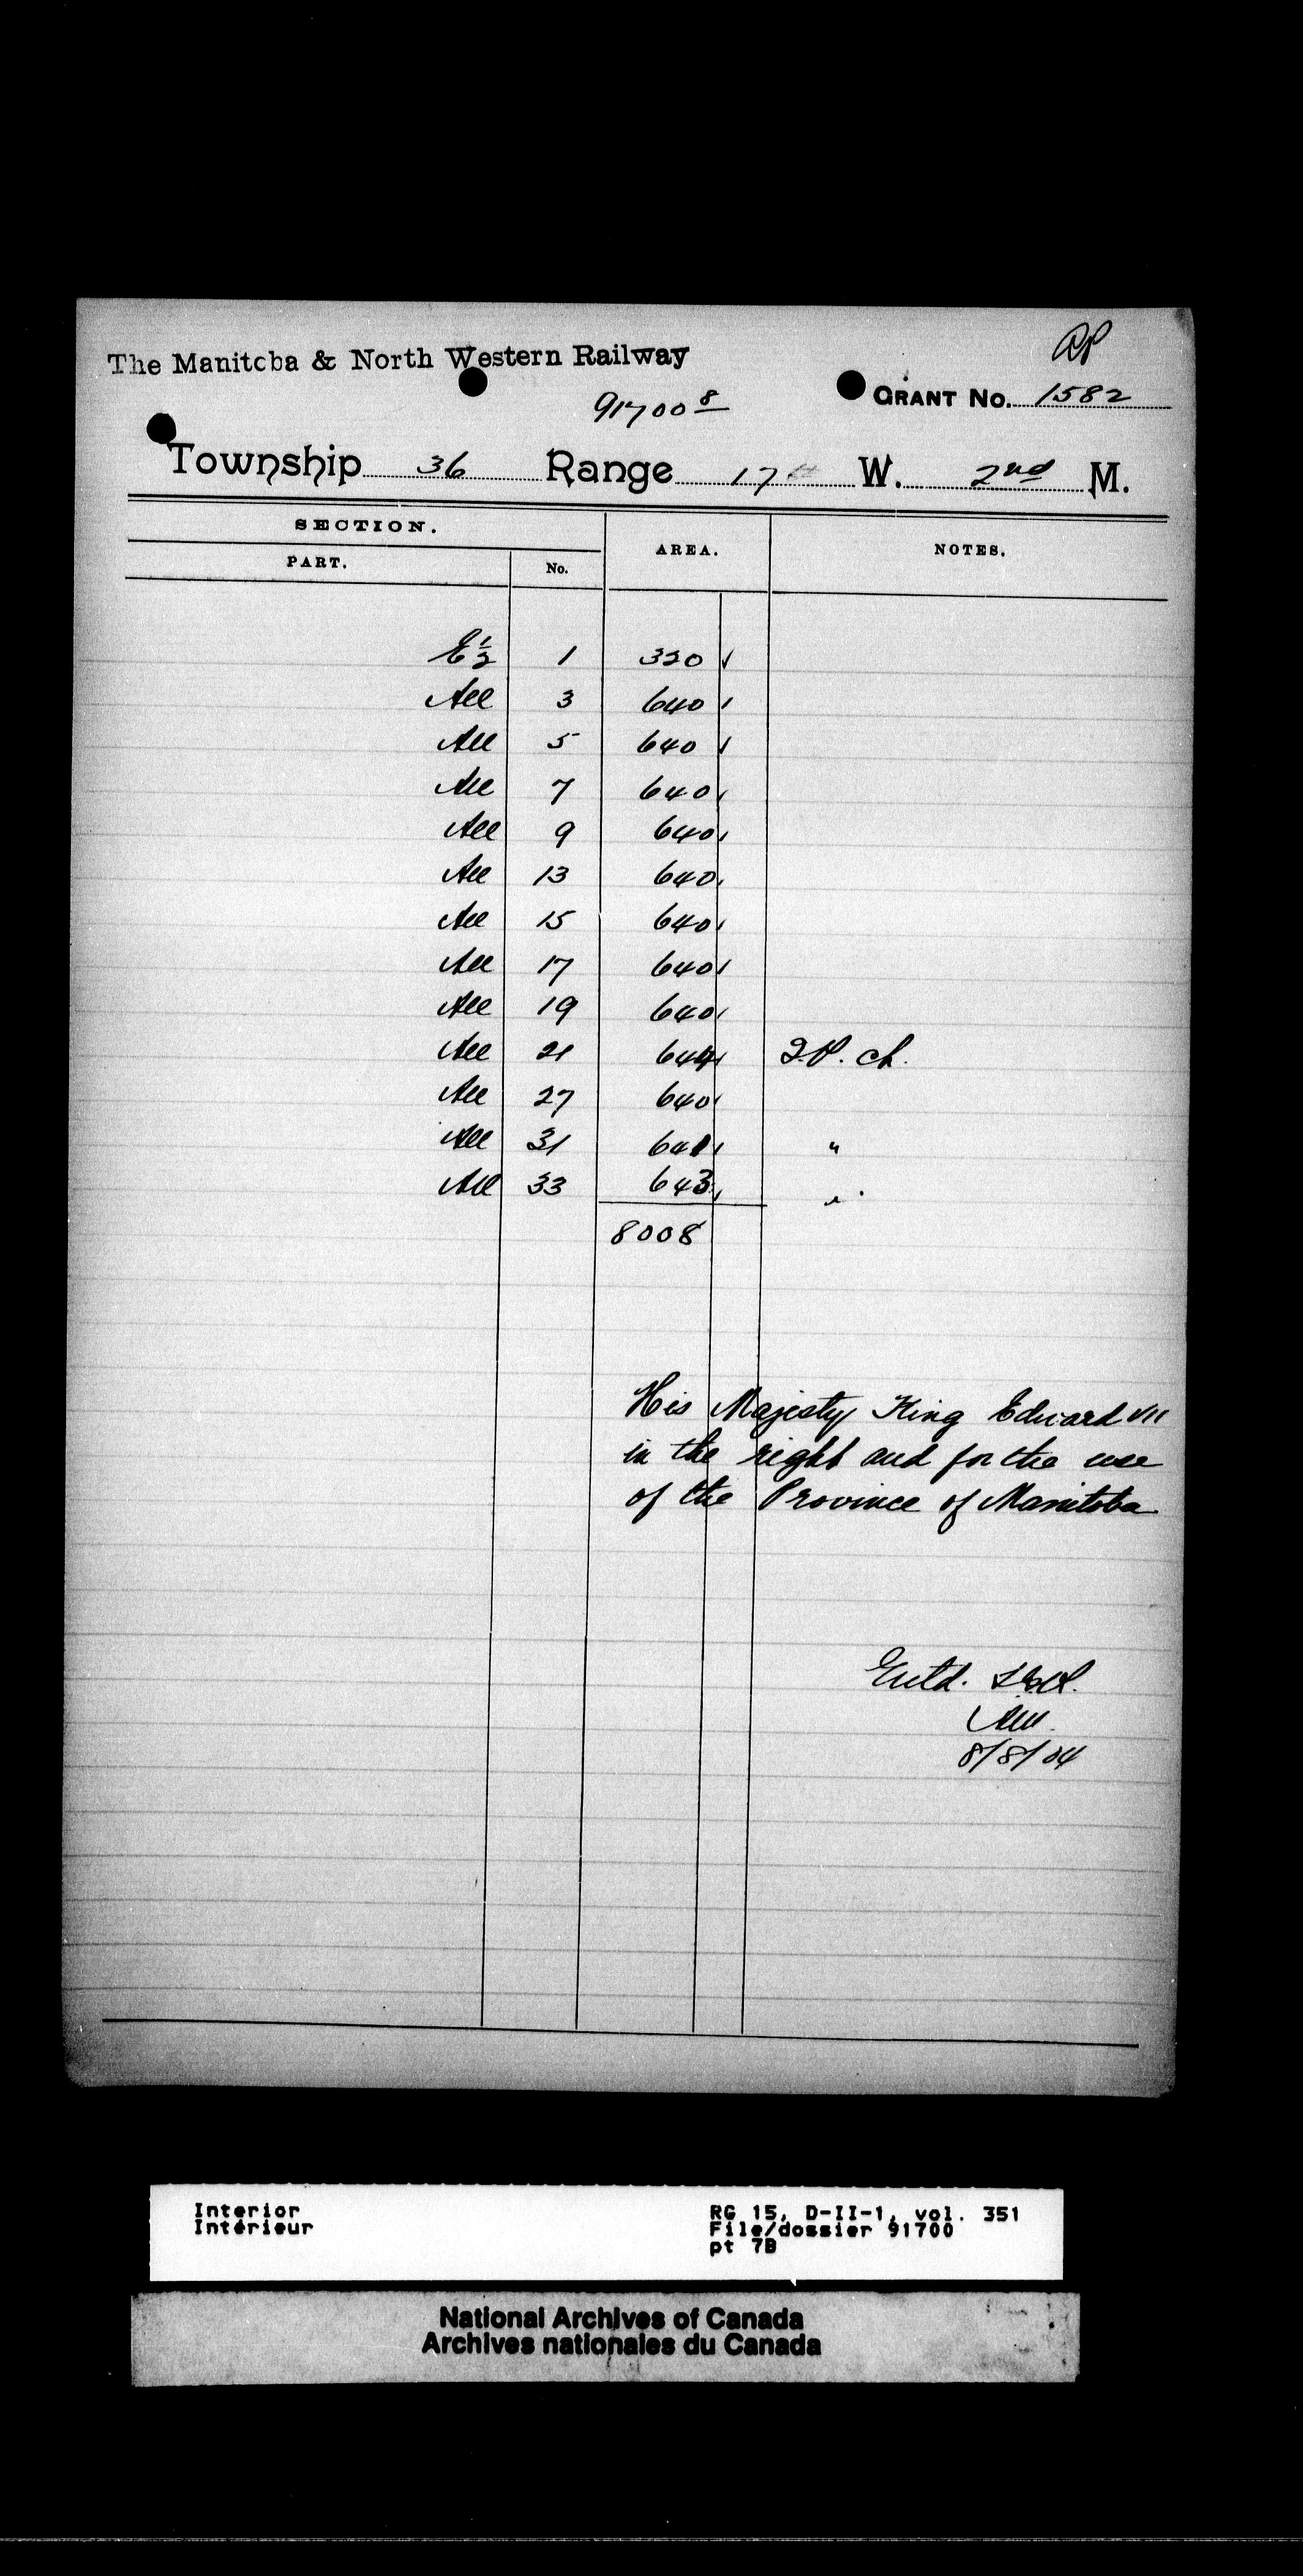 The Manitoba & North Western Railway
91700 8
GRANT No. 1582
Township 36 Range 17 W. 2nd M.
SECTION. AREA. NOTES.
PART. No.
E½ 1 320 ✓
All 3 640
All 5 640 ✓
All 7 640
All 9 640
All 13 640
All 15 640
All 17 640
All 19 640
All 21 644 ch.
All 27 640
All 31 641 "
All 33 643 "
8008
His Majesty King Edward VII
in the right and for the use
of the Province of Manitoba
Entd.
8/8/04
Interior RG 15, D-II-1, vol. 351
Intérieur File/dossier 91700
pt 7B
National Archives of Canada
Archives nationales du Canada